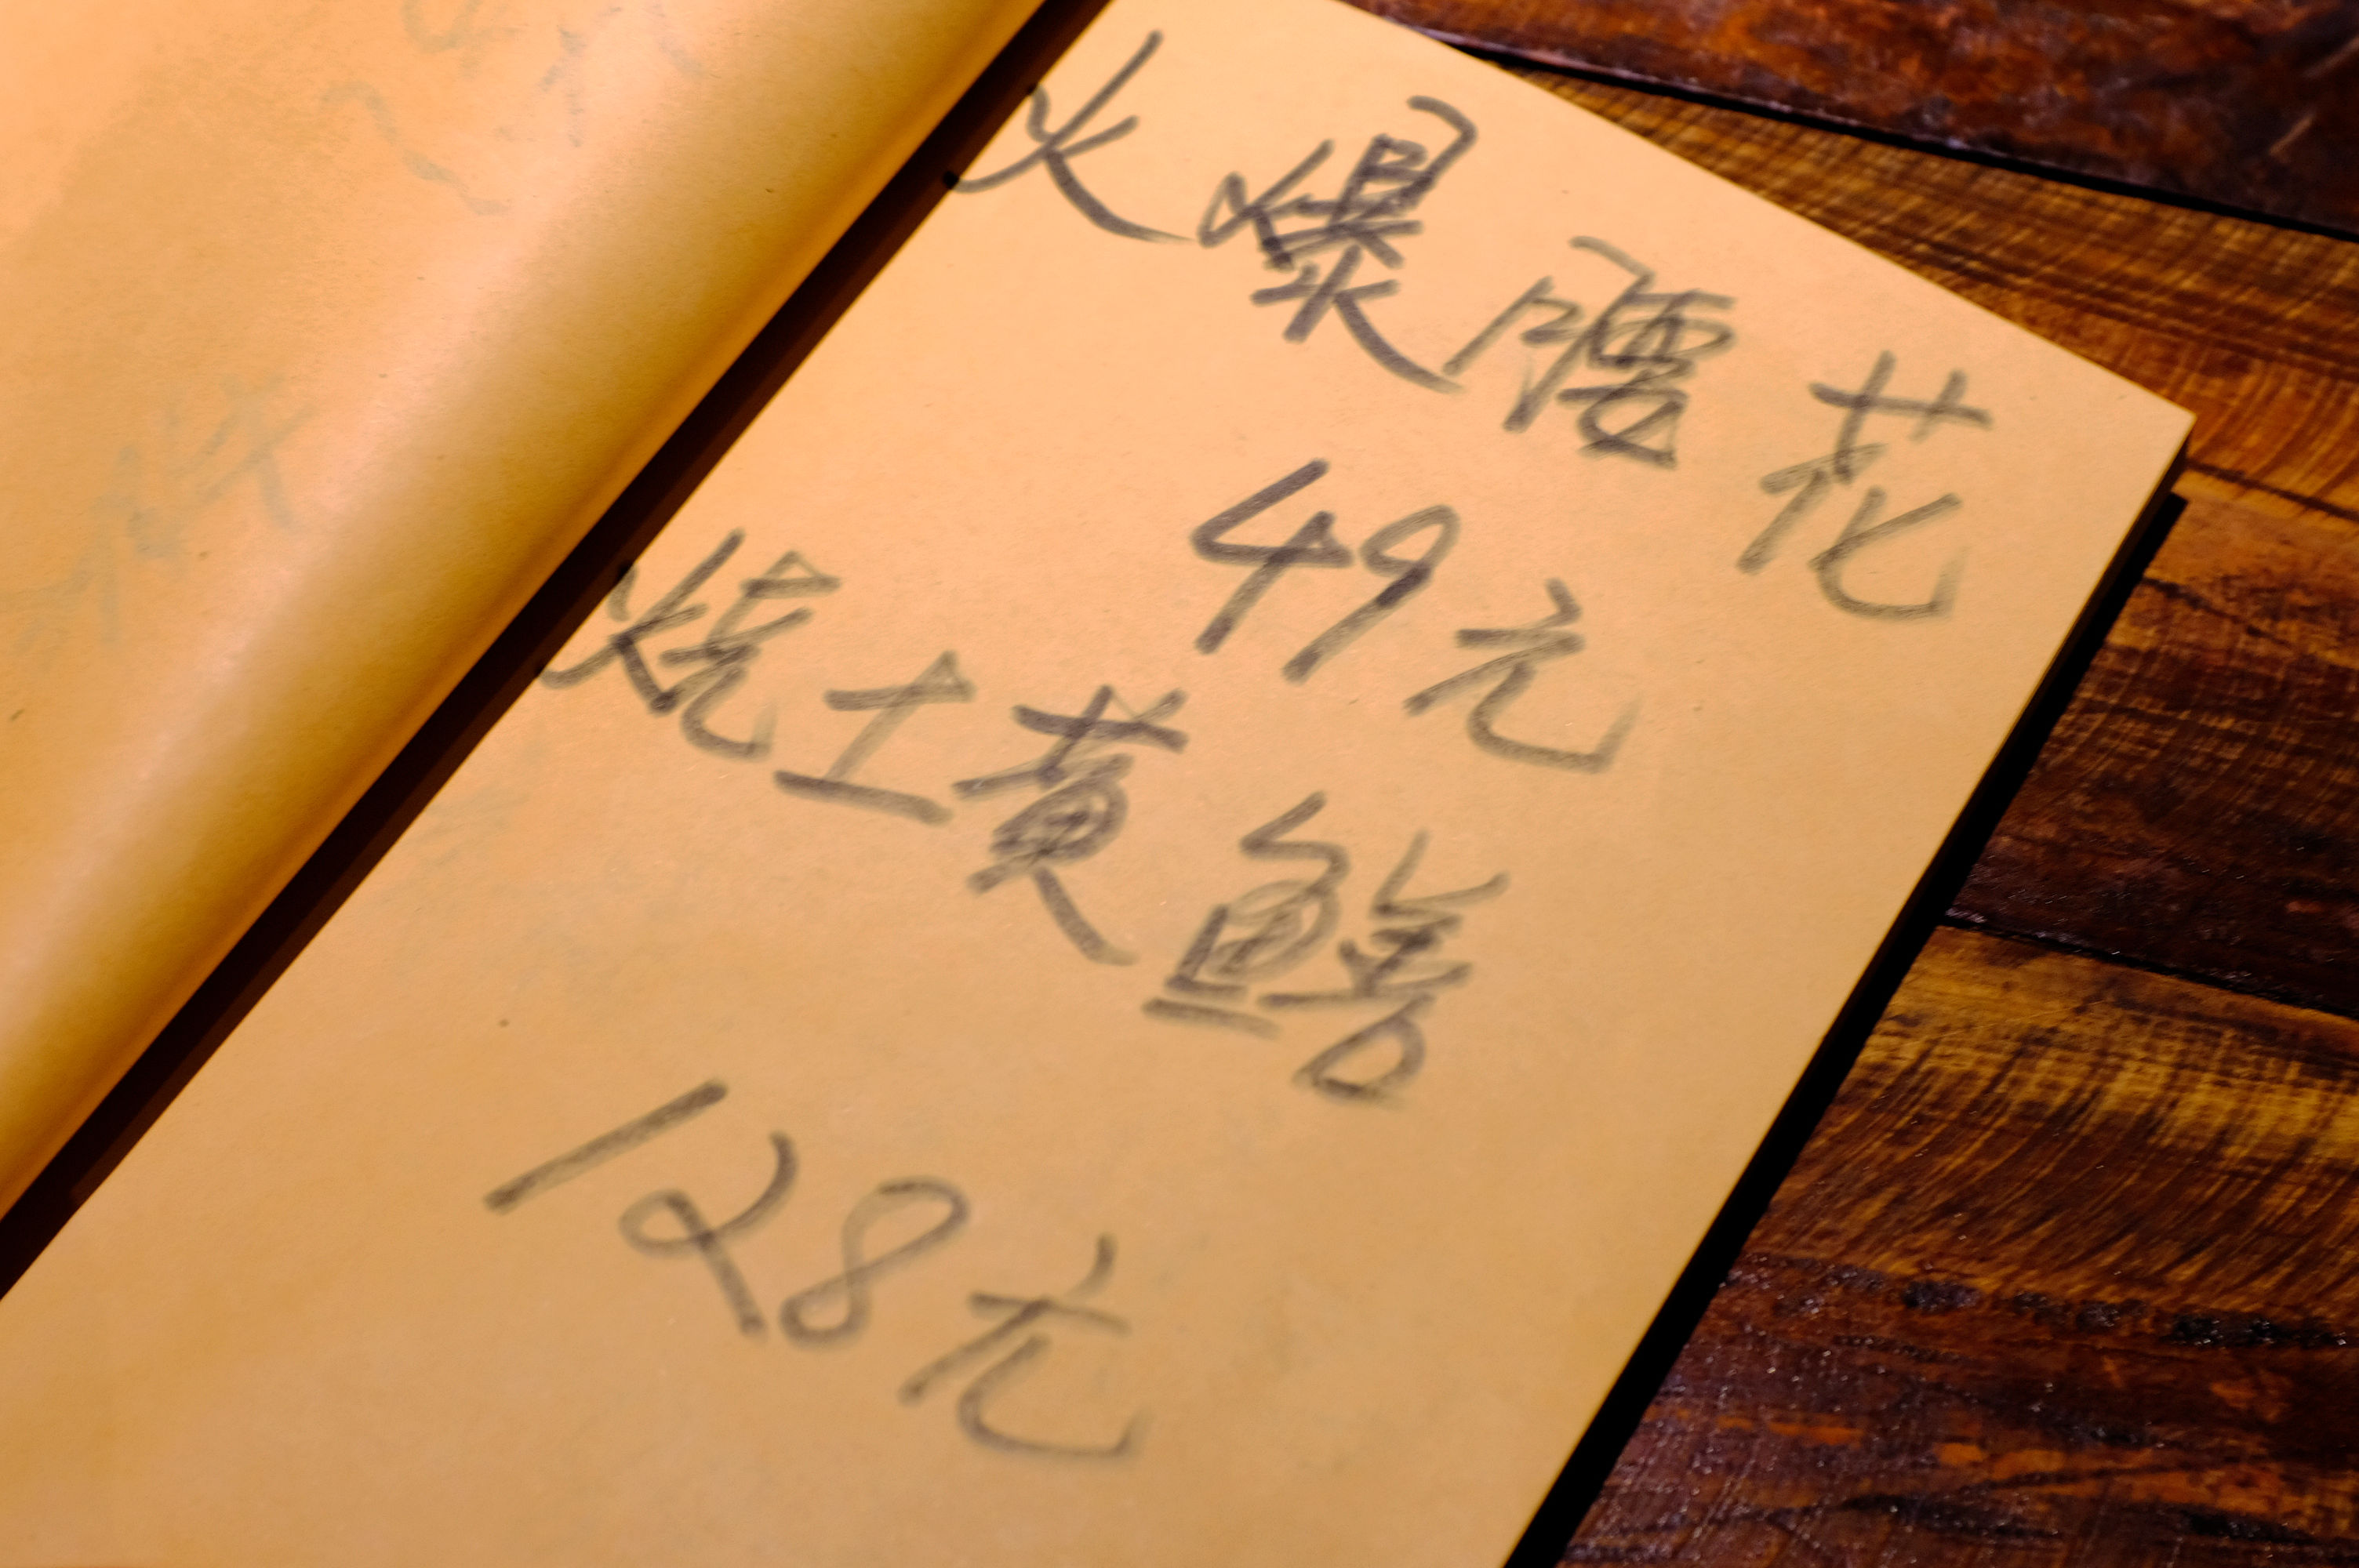 火爆腰花
49元
烧土黄鳝
128元